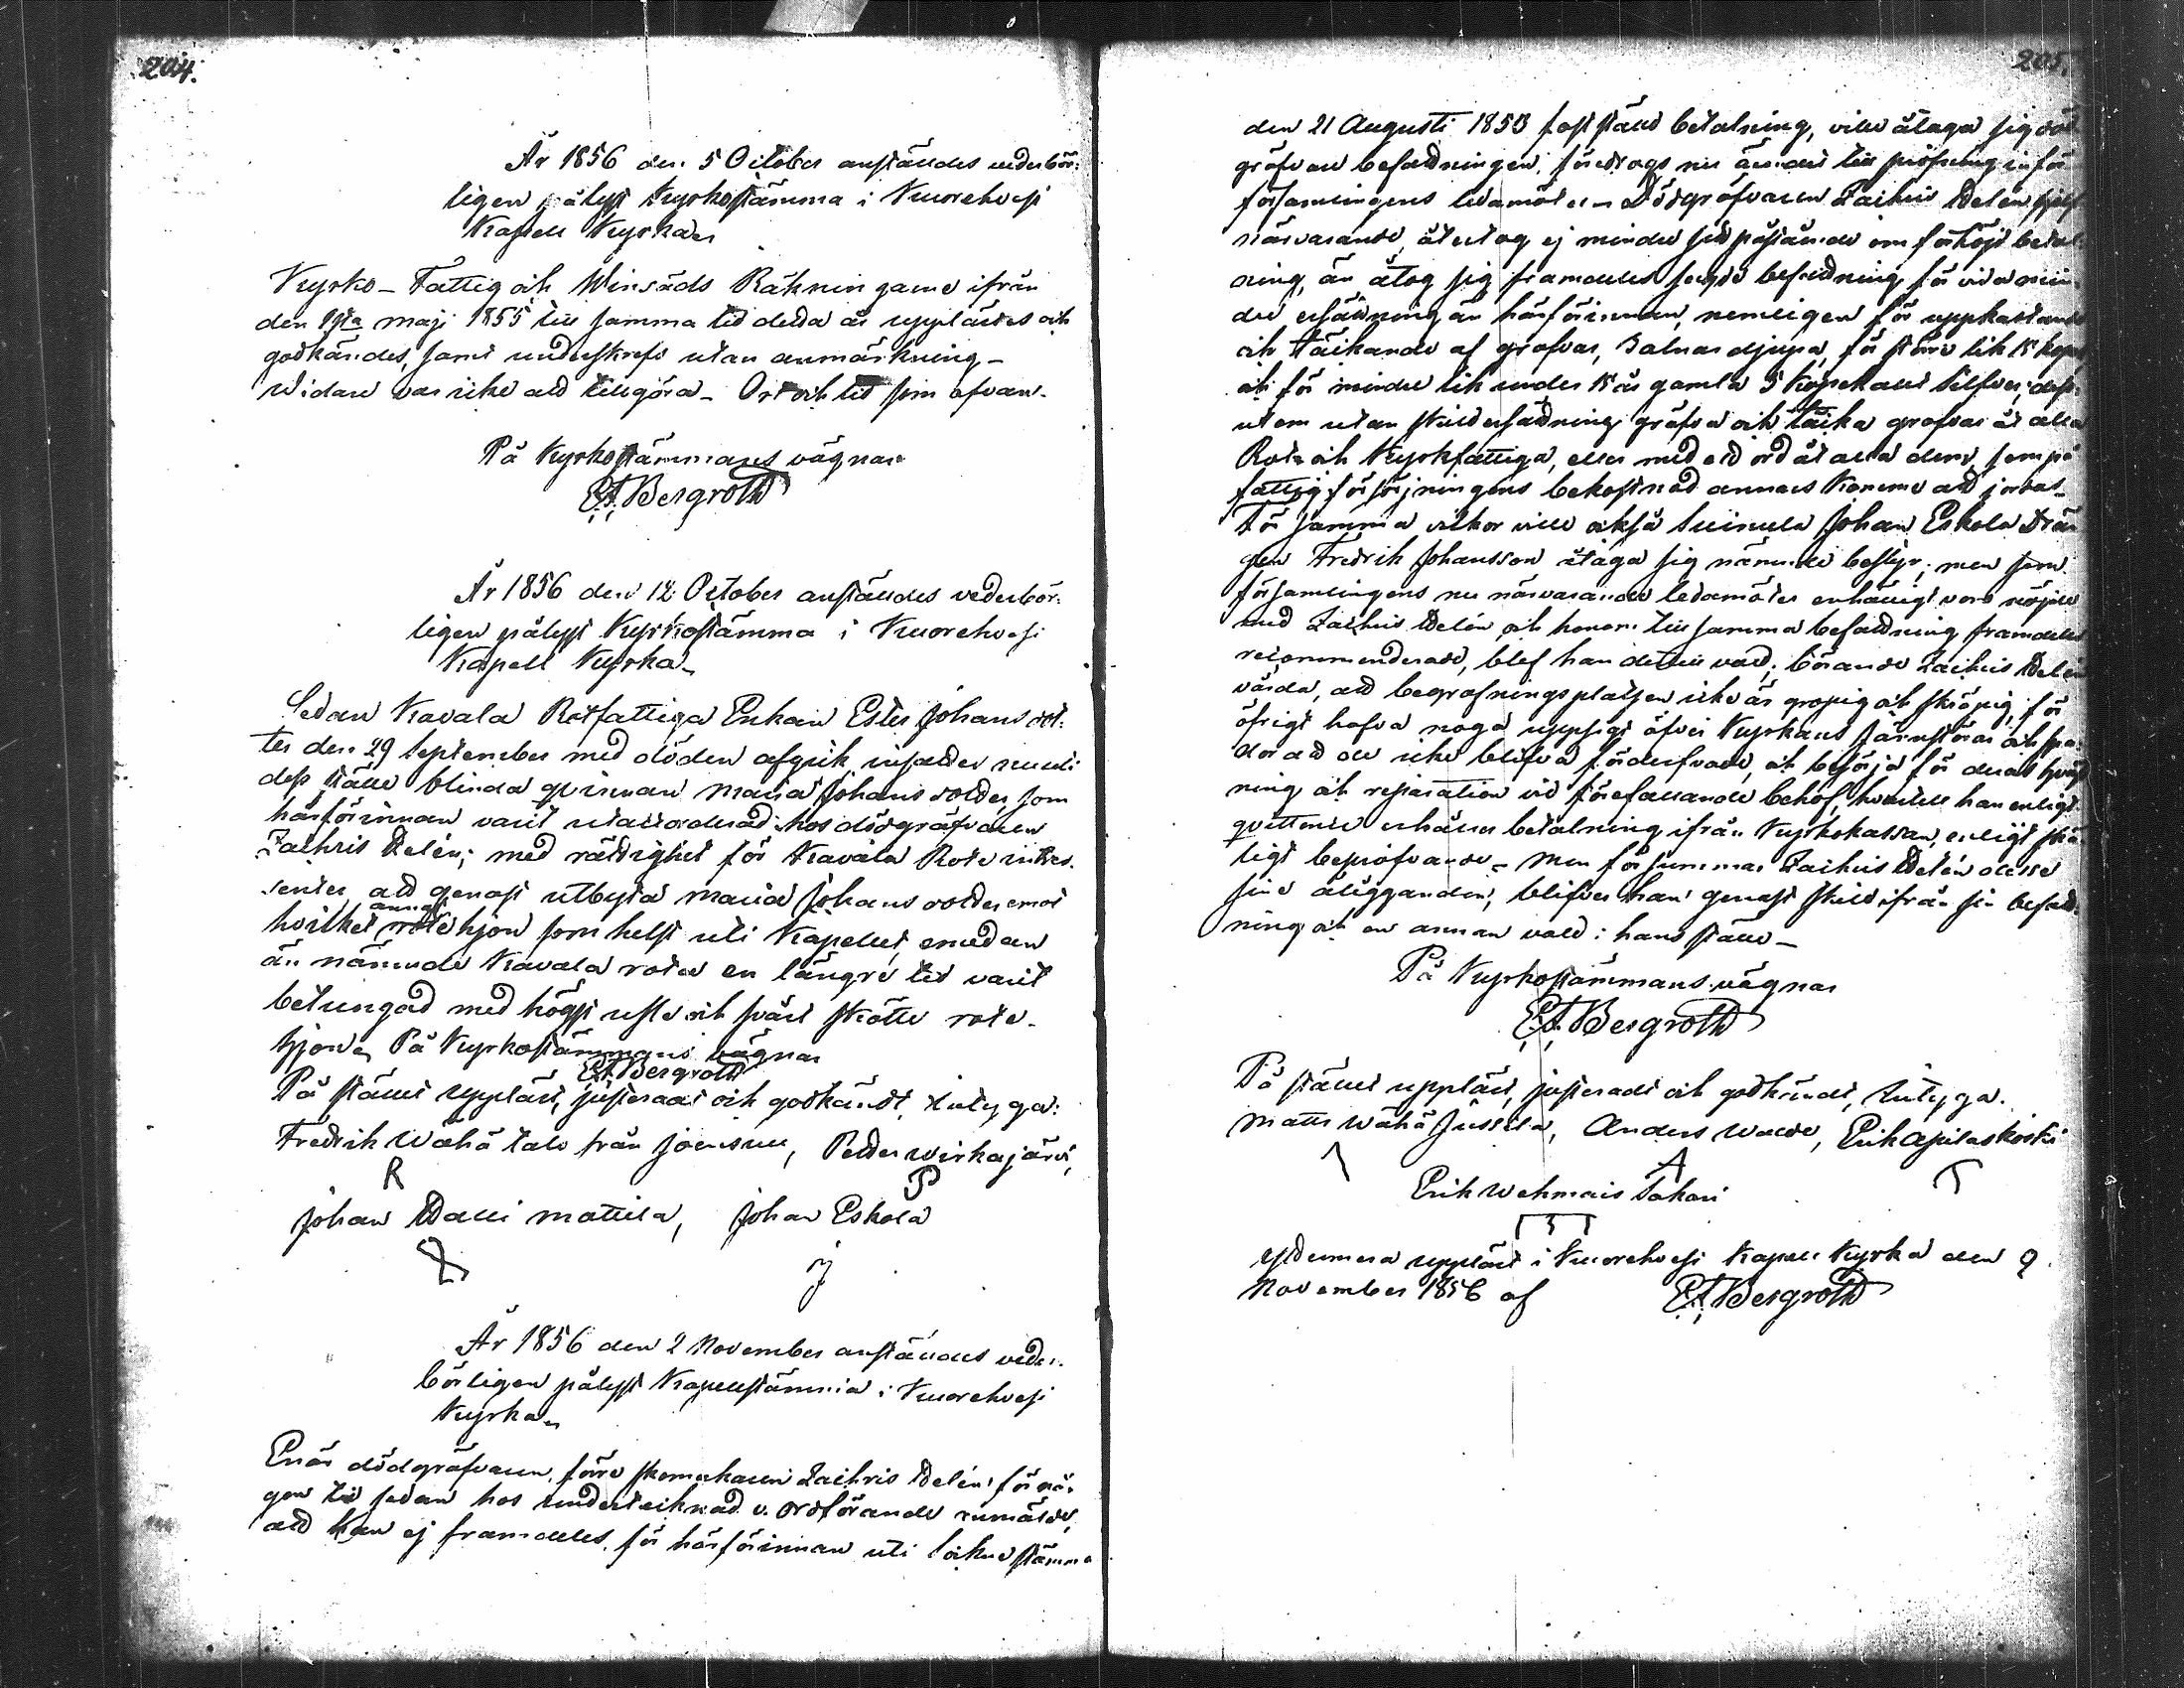 204.
År 1856 den 5 October anställdes vederbör-
ligen pålyst Kyrkostämma i Kuorehvesi
Kapell Kyrka
Kyrko- Fattig och Winsäds Räkningarne ifrån
den 1sta Maji 1855 till samma tid detta år upplästes och
godkändes, samt underskrefs utan anmärkning.
Widare var icke att tillgöra. Ort och tid som ofvan.
På Kyrkostämmans vägnar
Bergroth
År 1856 den 12 October anställdes vederbör-
ligen pålyst Kyrkostämma i Kuorehvesi
Kapell Kyrka
Sedan Kavala Rotfattiga Enkan Ester Johansdot-
ter den 29 September med döden afgick, insattes nu i
dess ställe blinda qvinnan Maria Johansdotter, som
härförinnan varit utackorderad hos dödgräfvaren
Zachris Delén; med rättighet för Kavala Rote intres-
senter, att genast utbyta Maria Johansdotter emot
hvilket annat rotehjon som helst uti Kapellet, emedan
än nämnde Kavala rota en längre tid varit
betungad med högst usle och svårt skötte rote-
hjon. På Kyrkostämmans vägnar
Bergroth
På stället uppläst, justeradt och godkändt, intyga:
Fredrik Wähätalo från Joensuu, Petter Wirkajärvi,
Johan Dalli Mattila, Johan Eskola
År 1856 den 2 November anställdes veder-
börligen pålyst Kapellstämma i Kuorehvesi
Kyrka
Enär dödgräfvaren, förre skomakaren Zachris Delén för nå-
gon tid sedan hos undertecknad v. ordförande anmälde,
att han ej framdeles, för härförinnan uti Sockne stämma
205.
den 21 Augusti 1853 fastställd betalning, ville åtaga sig död
gräfvare befattningen, föredrogs nu ärendet till pröfning inför
församlingens ledamöter. Dödgräfvaren Zachris Delén sjelf
närvarande, återtog ej mindre sitt påstående om förhöjd betal-
ning, än åtog sig framdeles sagde befattning, för vida min-
dre ersättning än härförinnan, nemligen för uppkastande
och täckande af grafvar, 3 alnar djupa, för större lik 15 kop
och för mindre lik under 15 år gamla 5 Kopek allt Silfver; dess-
utom utan skild ersättning gräfva och täcka grafvar åt alla
Rote och Kyrkfattiga, eller med ett ord åt alla dem, som på
fattigförsörjningens bekostnad annars komme att jordas.
För samma vilkor ville också Suinula Johan Eskola Drän
gen Fredrik Johansson åtaga sig nämnde bestyr; men som
församlingens nu närvarande ledamöter enhälligt voro nöjde
med Zachris Delén och honom till samma befattning framdeles
recommenderade, blef han dertill vald; börande Zachris Delén
vårda, att begrafningsplatsen icke är gropig och skräpig, för
öfrigt hafva noga uppsigt öfver Kyrkans jernstörar och spa-
dor att de icke blifva förderfvade, och besörja för deras hväss
ning och reparation vid förefallande behof, hvartill han enligt
qvittence erhåller betalning ifrån Kyrkokassan, enligt skä-
ligt bepröfvande. Men försummar Zachris Delén desse
sine åligganden, blifver han genast skild ifrån sin befatt-
ning och en annan vald i hans ställe.
På Kyrkostämmans vägnar
Bergroth
På stället uppläst, justeradt och godkändt, intyga.
Matts Wähä Jussila, Anders Walde, Erik Apilaskoski
Erik Wehmais Takari
Ytterméra uppläst i Kuorehvesi Kapell Kyrka den 9
November 1856 af Bergroth